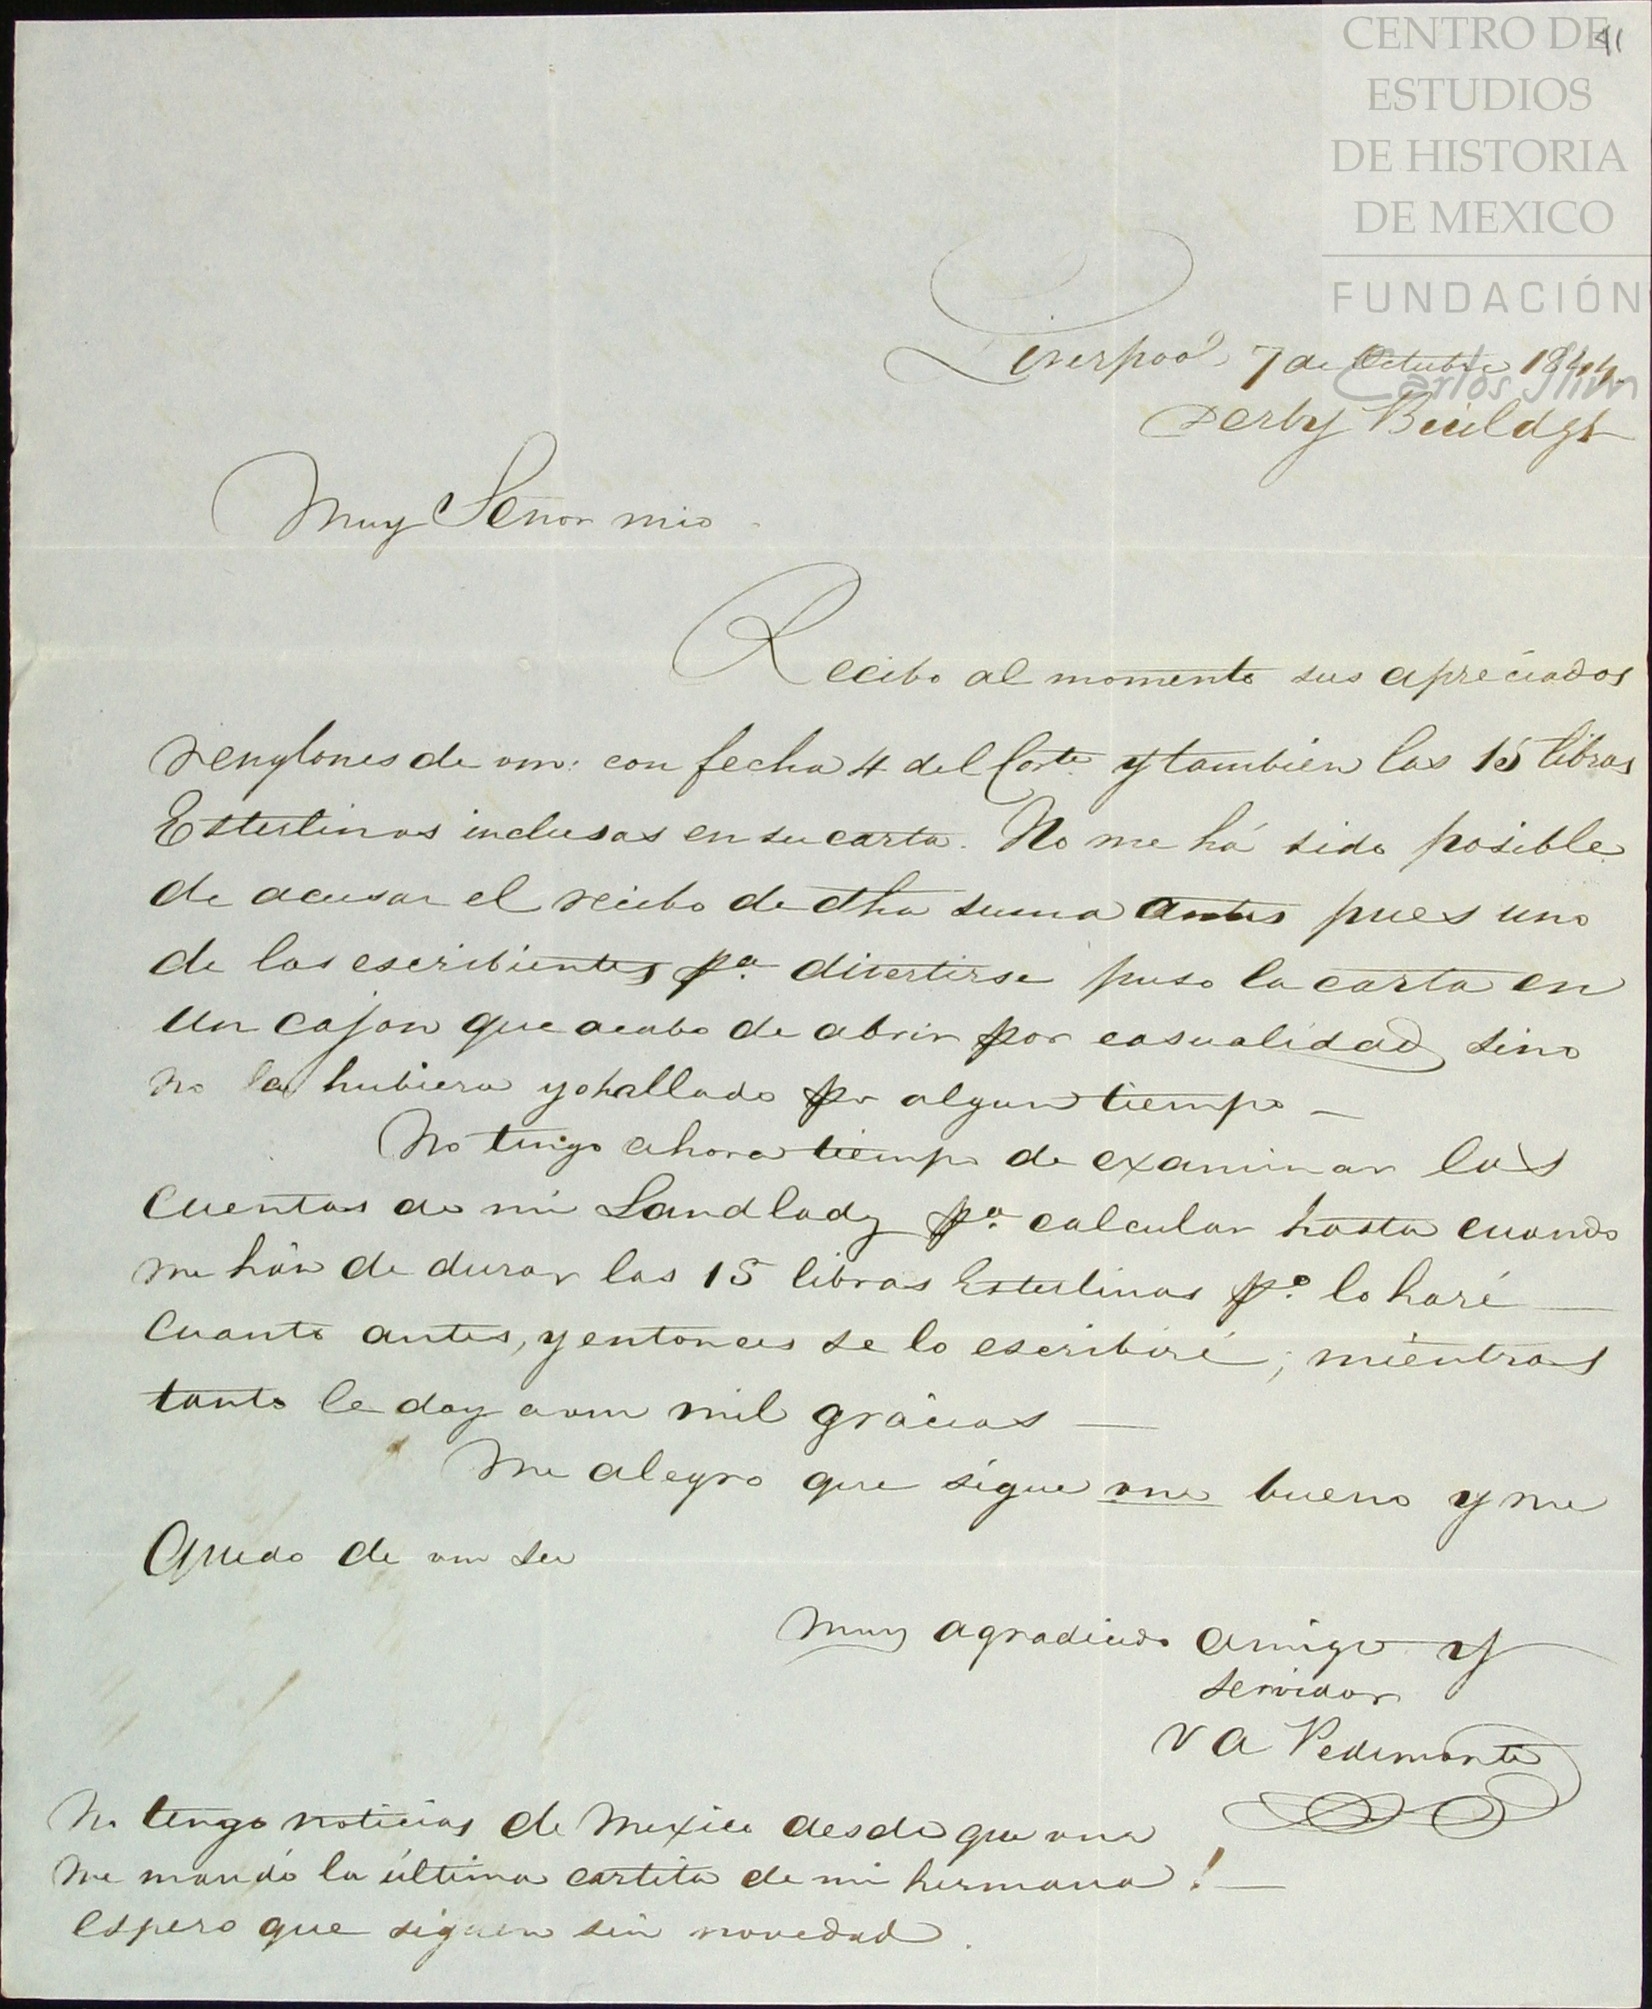 CENTRO DE
ESTUDIOS
DE HISTORIA
DE MEXICO
FUNDACIÓN
Carlos Slim
41
Liverpool 7 de Octubre 1844
Derby Buildgs
Muy Señor mio
Recibo al momento sus apreciados
renglones de vm: con fecha 4 del Corte. y tambien las 15 libras
Esterlinas inclusas en su carta. No me há sido posible
de acusar el recibo de dha suma antes pues uno
de los escribientes pa. divertirse puso la carta en
un cajon que acabo de abrir por casualidad, sino
no la hubiera yo hallado pr algun tiempo —
No tengo ahora tiempo de examinar las
cuentas de mi Landlady pa. calcular hasta cuando
me hán de durar las 15 libras Esterlinas po. lo haré —
cuanto antes, y entonces se lo escribiré; mientras
tanto le doy a vm mil gracias —
Me alegro que sigue vm bueno y me
Quedo de vm su
muy agradecido amigo y
servidor
V A Pedemonte
No tengo noticias de Mexico desde que vm
me mandó la última cartita de mi hermana! —
espero que siguen sin novedad.